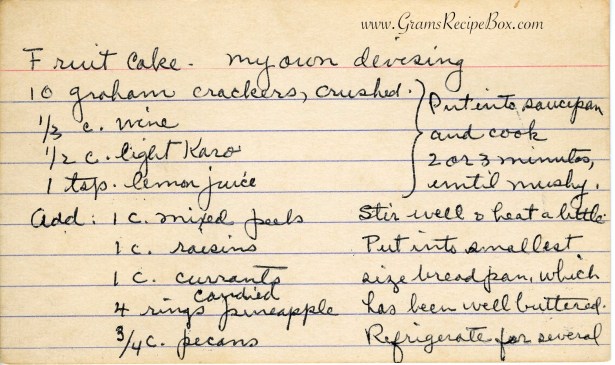 www.GramsRecipeBox.com
Fruit Cake - my own devising
10 graham crackers, crushed.
1/3 c. wine
1/2 c. light Karo
1 tsp. lemon juice
Put into saucepan
and cook
2 or 3 minutes,
until mushy.
Add: 1 c. mixed peels
1 c. raisins
1 c. currants
4 rings candied pineapple
3/4 c. pecans
Stir well & heat a little
Put into smallest
size bread pan, which
has been well buttered.
Refrigerate for several